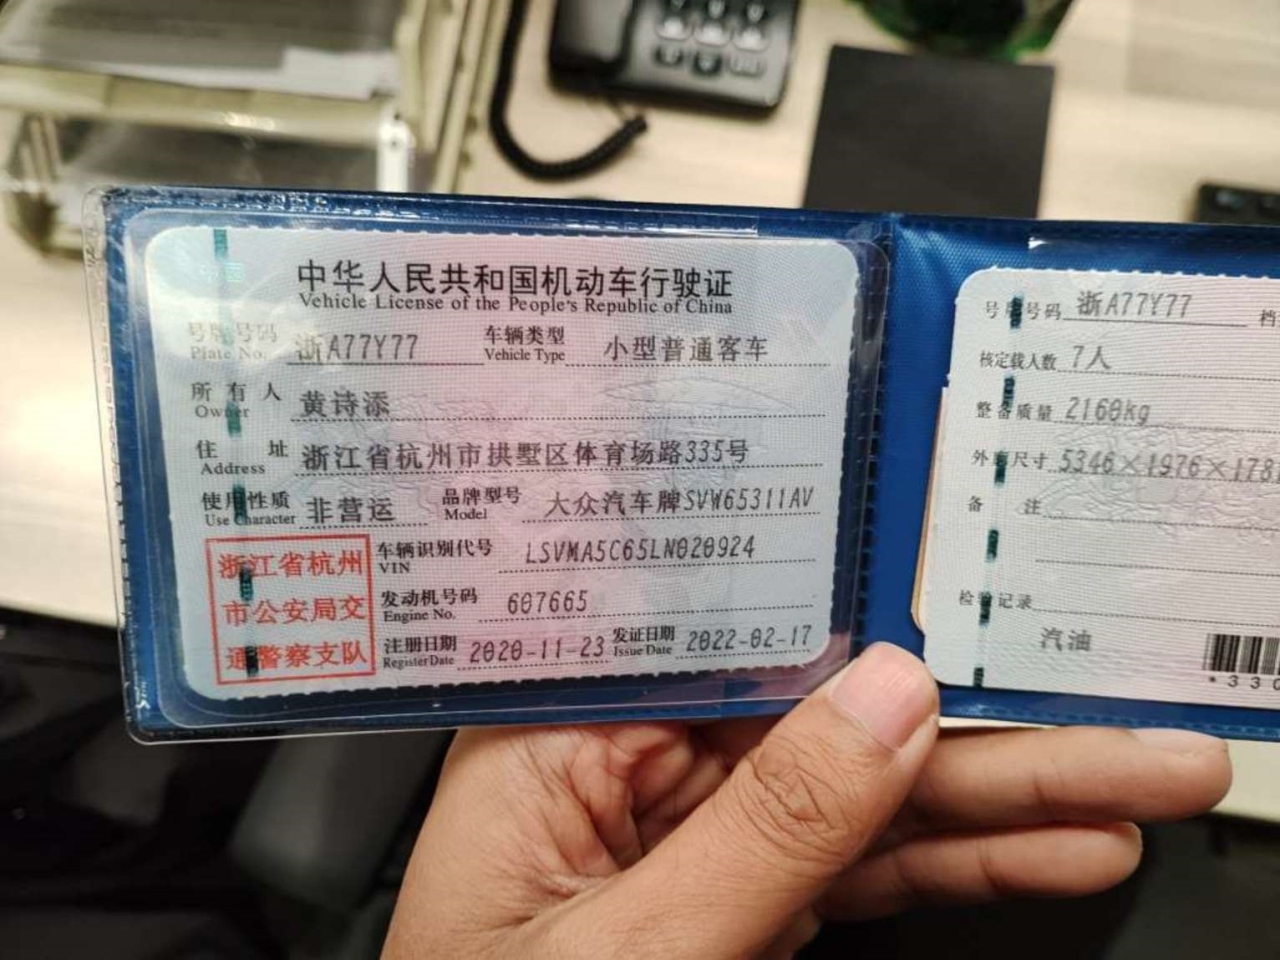 中华人民共和国机动车行驶证
Vehicle License of the People's Republic of China
号牌号码 Plate No. 浙A77Y77 车辆类型 Vehicle Type 小型普通客车
所有人 Owner 黄诗添
住址 Address 浙江省杭州市拱墅区体育场路335号
使用性质 Use Character 非营运 品牌型号 Model 大众汽车牌SVW6531IAV
车辆识别代号 VIN LSVMA5C65LN020924
发动机号码 Engine No. 607665
注册日期 Register Date 2020-11-23 发证日期 Issue Date 2022-02-17
浙江省杭州
市公安局交
通警察支队
号牌号码 浙A77Y77 档
核定载人数 7人
整备质量 2160kg
外廓尺寸 5346×1976×178
备注
检验记录
汽油
*330